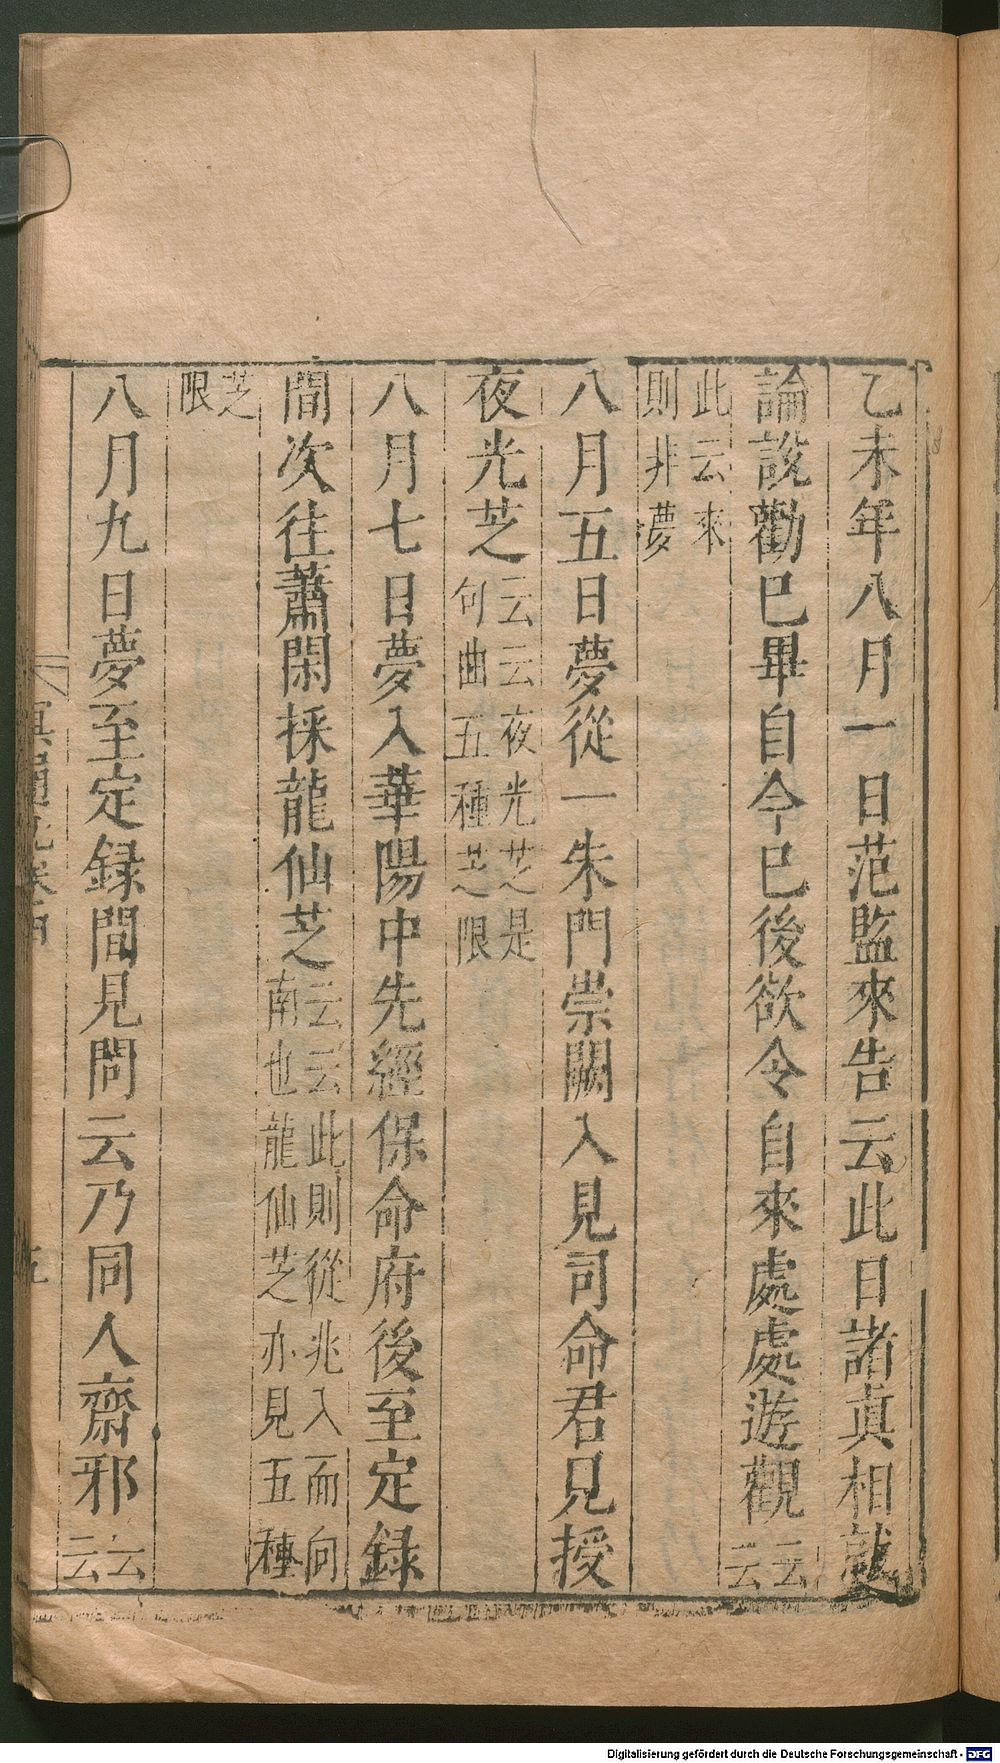 乙未年八月一日范監來告云此日諸真相就
論說勸已畢自今已後欲令自來處處遊觀云云
此云來
則非夢
八月五日夢從一朱門崇闕入見司命君見授
夜光芝云云夜光芝是
句曲五種芝限
八月七日夢入華陽中先經保命府後至定録
間次往蕭閑採龍仙芝云云此則從兆入而向
南也龍仙芝亦見五種
芝
限
八月九日夢至定録間見問云乃同人齋邪云云
Digitalisierung gefördert durch die Deutsche Forschungsgemeinschaft - DFG